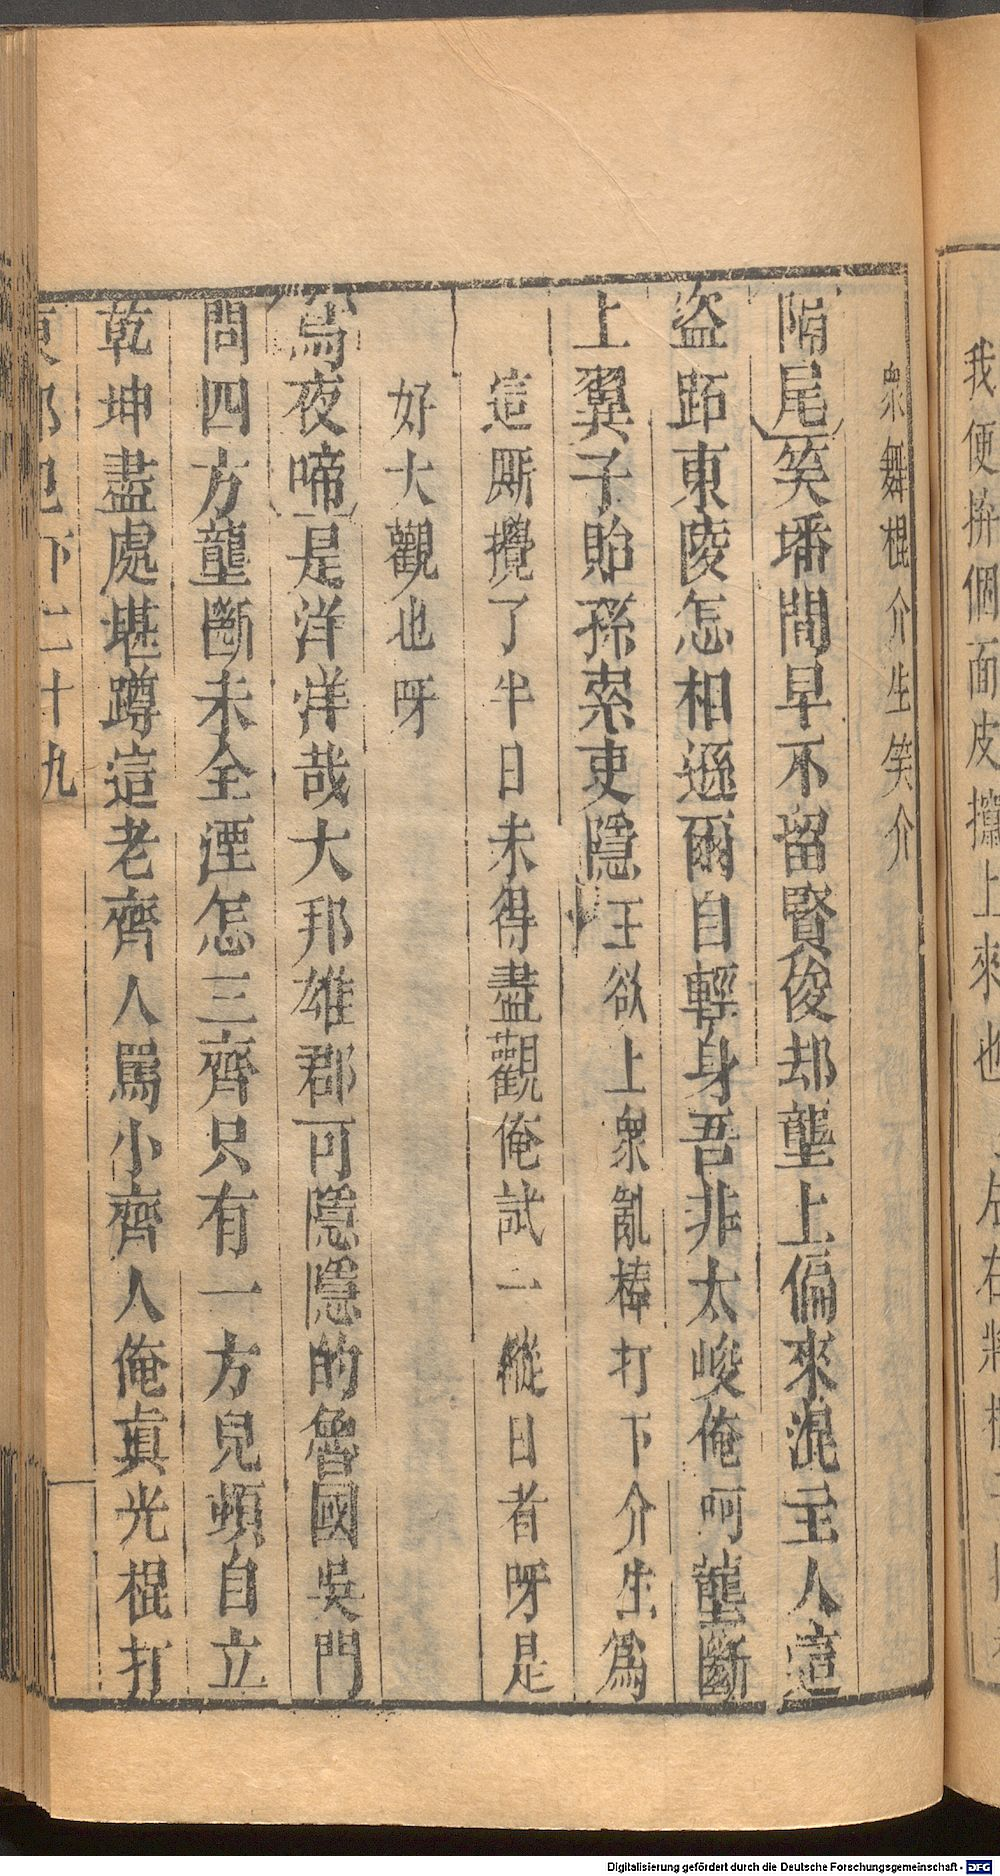 我便拚個面皮攛上來也
衆舞棍介生笑介
隔尾笑墦間早不留賢俊却壟上偏來混主人這
盜跖東陵怎相遜爾自輕身吾非太峻俺呵壟斷
上翼子貽孫索吏隱王欲上衆亂棒打下介生爲
這厮攪了半日未得盡觀俺試一縱目者呀是
好大觀也呀
烏夜啼是洋洋哉大邦雄郡可隱隱的魯國吳門
問四方壟斷未全湮怎三齊只有一方兒頓自立
乾坤盡處堪蹲這老齊人罵小齊人俺眞光棍打
東郭記下二十九
Digitalisierung gefördert durch die Deutsche Forschungsgemeinschaft - DFG